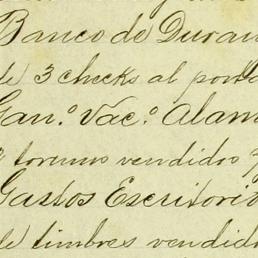 Banco de Duran
de 3 checks al porta
Gan.º Vac.º Alam
toreuus vendidos
Gastos Escritorio
de timbres vendido